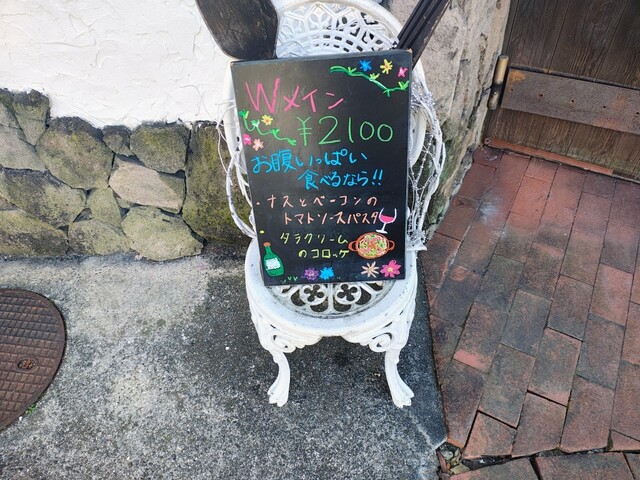 Wメイン
¥2100
お腹いっぱい
食べるなら!!
・ナスとベーコンの
トマトソースパスタ
・タラクリーム
のコロッケ